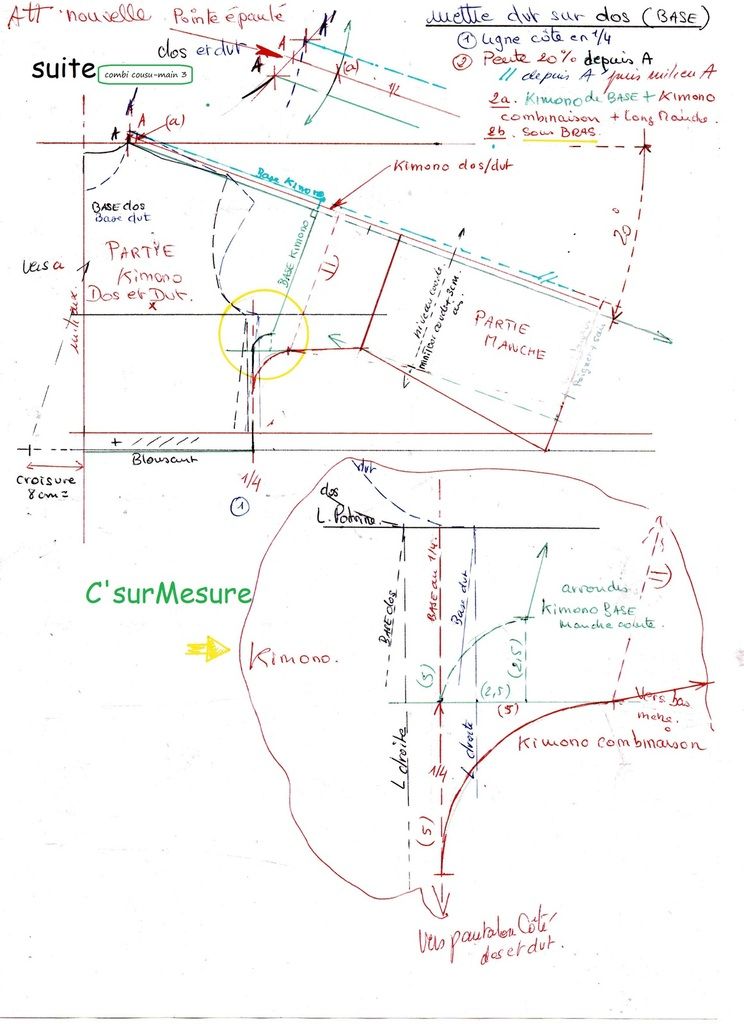 Att nouvelle Pointe épaule
mettre dvt sur dos (BASE)
① ligne côté en 1/4
② Pente 20% depuis A
// depuis A puis milieu A
2a. Kimono de BASE + Kimono
combinaison + Long Manche.
2b. Sous BRAS.
dos et dvt
suite combi cousu-main 3
A
A
A
(a)
1/2
A
A
(a)
Base Kimono
Kimono dos/dvt
BASE dos
Base dvt
BASE Kimono
20°
PARTIE
Kimono
Dos et Dvt.
x
vers a
milieux.
niveau coude
PARTIE
MANCHE
+
Blousant
Croisure
8 cm =
1/4
①
dvt
dos
L. Poitrine.
C'surMesure
Kimono.
BASE dos
BASE au 1/4.
Base dvt
arrondis
Kimono BASE
Manche courte.
(3)
(2,5)
(2,5)
(5)
Vers bas
Kimono combinaison
L droite
L droite
1/4
(5)
Vers pantalon Côté
dos et dvt.